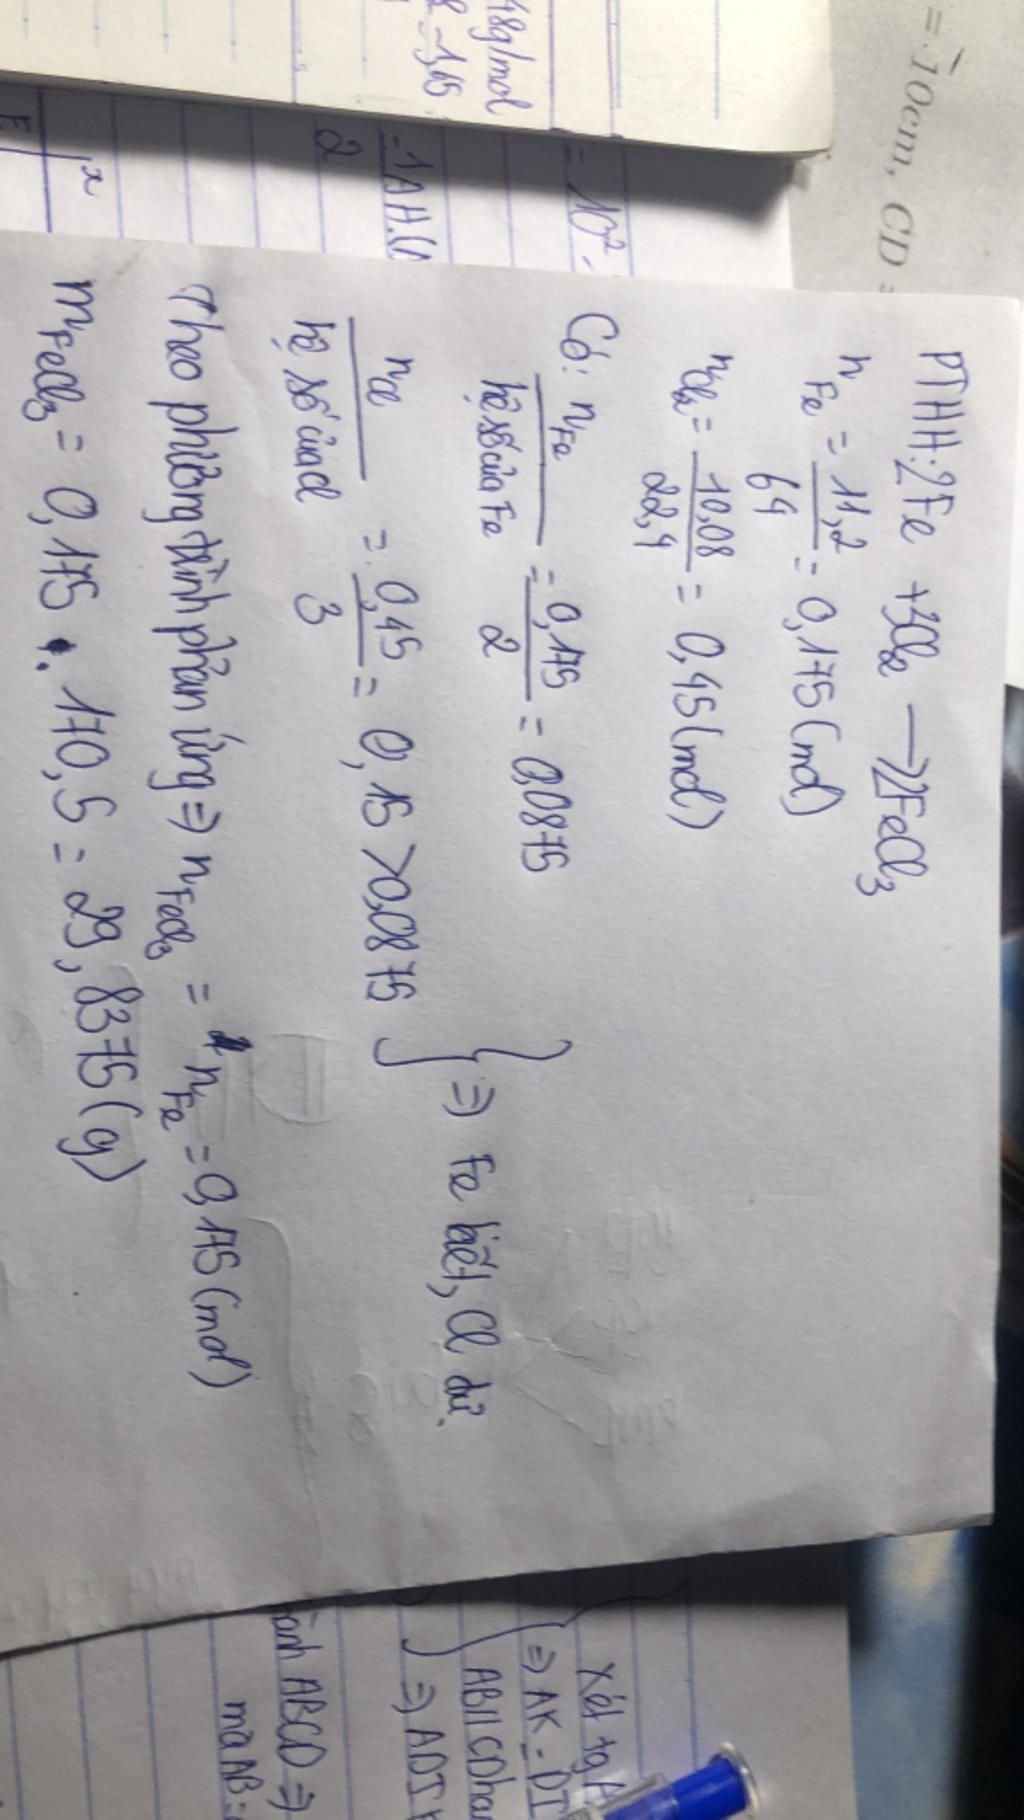 PTHH: 2Fe + 3Cl₂ → 2FeCl₃
n_Fe = 11,2/64 = 0,175 (mol)
n_Cl₂ = 10,08/22,4 = 0,45 (mol)
Có: n_Fe/hệ số của Fe = 0,175/2 = 0,0875
n_Cl/hệ số của Cl = 0,45/3 = 0,15 > 0,0875 } ⇒ Fe hết, Cl dư.
Theo phương trình phản ứng ⇒ n_FeCl₃ = n_Fe = 0,175 (mol)
m_FeCl₃ = 0,175 . 170,5 = 29,8375 (g)
= 10cm, CD =
48g/mol
8 - 1,65
= 10² -
= 1AH.
2
x
E
Xét tg A
⇒ AK = DI
AB // CD
⇒ ADI
ABCD ⇒
mà AB =